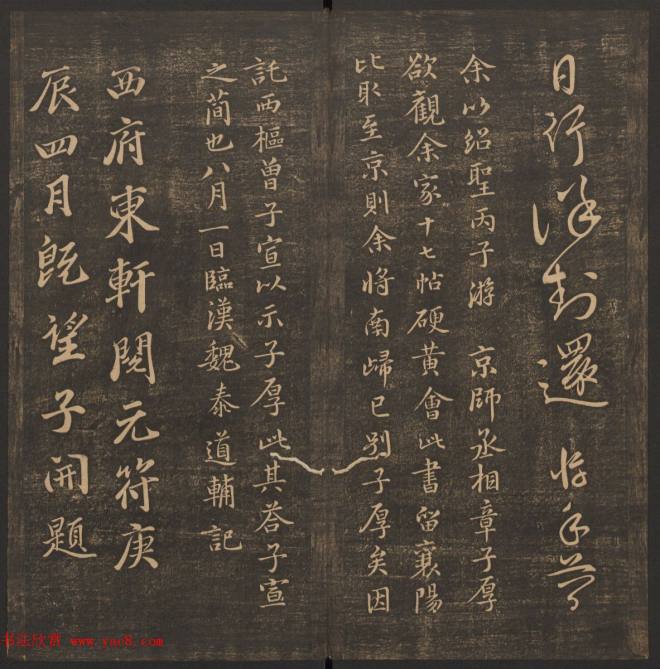 日行謹封還 惇手
余以紹聖丙子游 京師丞相章子厚
欲觀余家十七帖硬黃會此書留襄陽
比取至京則余將南歸已别子厚矣因
託西樞曾子宣以示子厚此其荅子宣
之簡也八月一日臨漢魏泰道輔記
西府東軒閱元符庚
辰四月既望子開題
书法欣赏 www.yac8.com